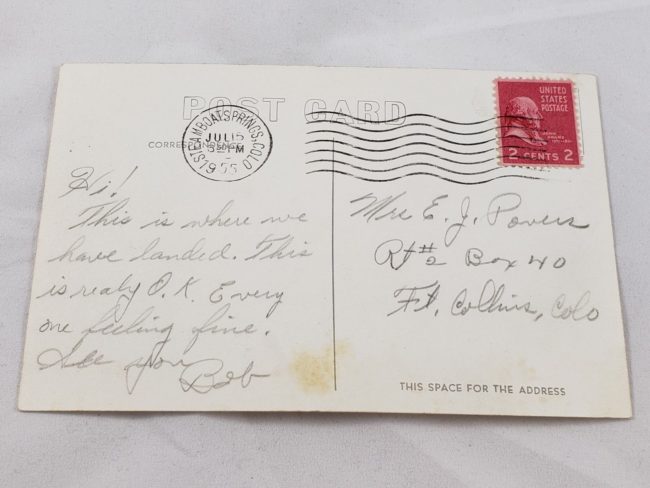 POST CARD
CORRESPONDENCE
STEAMBOAT SPRINGS, COLO.
JUL 15
PM
1955
UNITED
STATES
POSTAGE
2 CENTS 2
Hi!
This is where we
have landed. This
is realy O.K. Every
one feeling fine.
See you
Bob
Mrs E. J. Powers
Rt #2 Box 40
Ft. Collins, Colo
THIS SPACE FOR THE ADDRESS